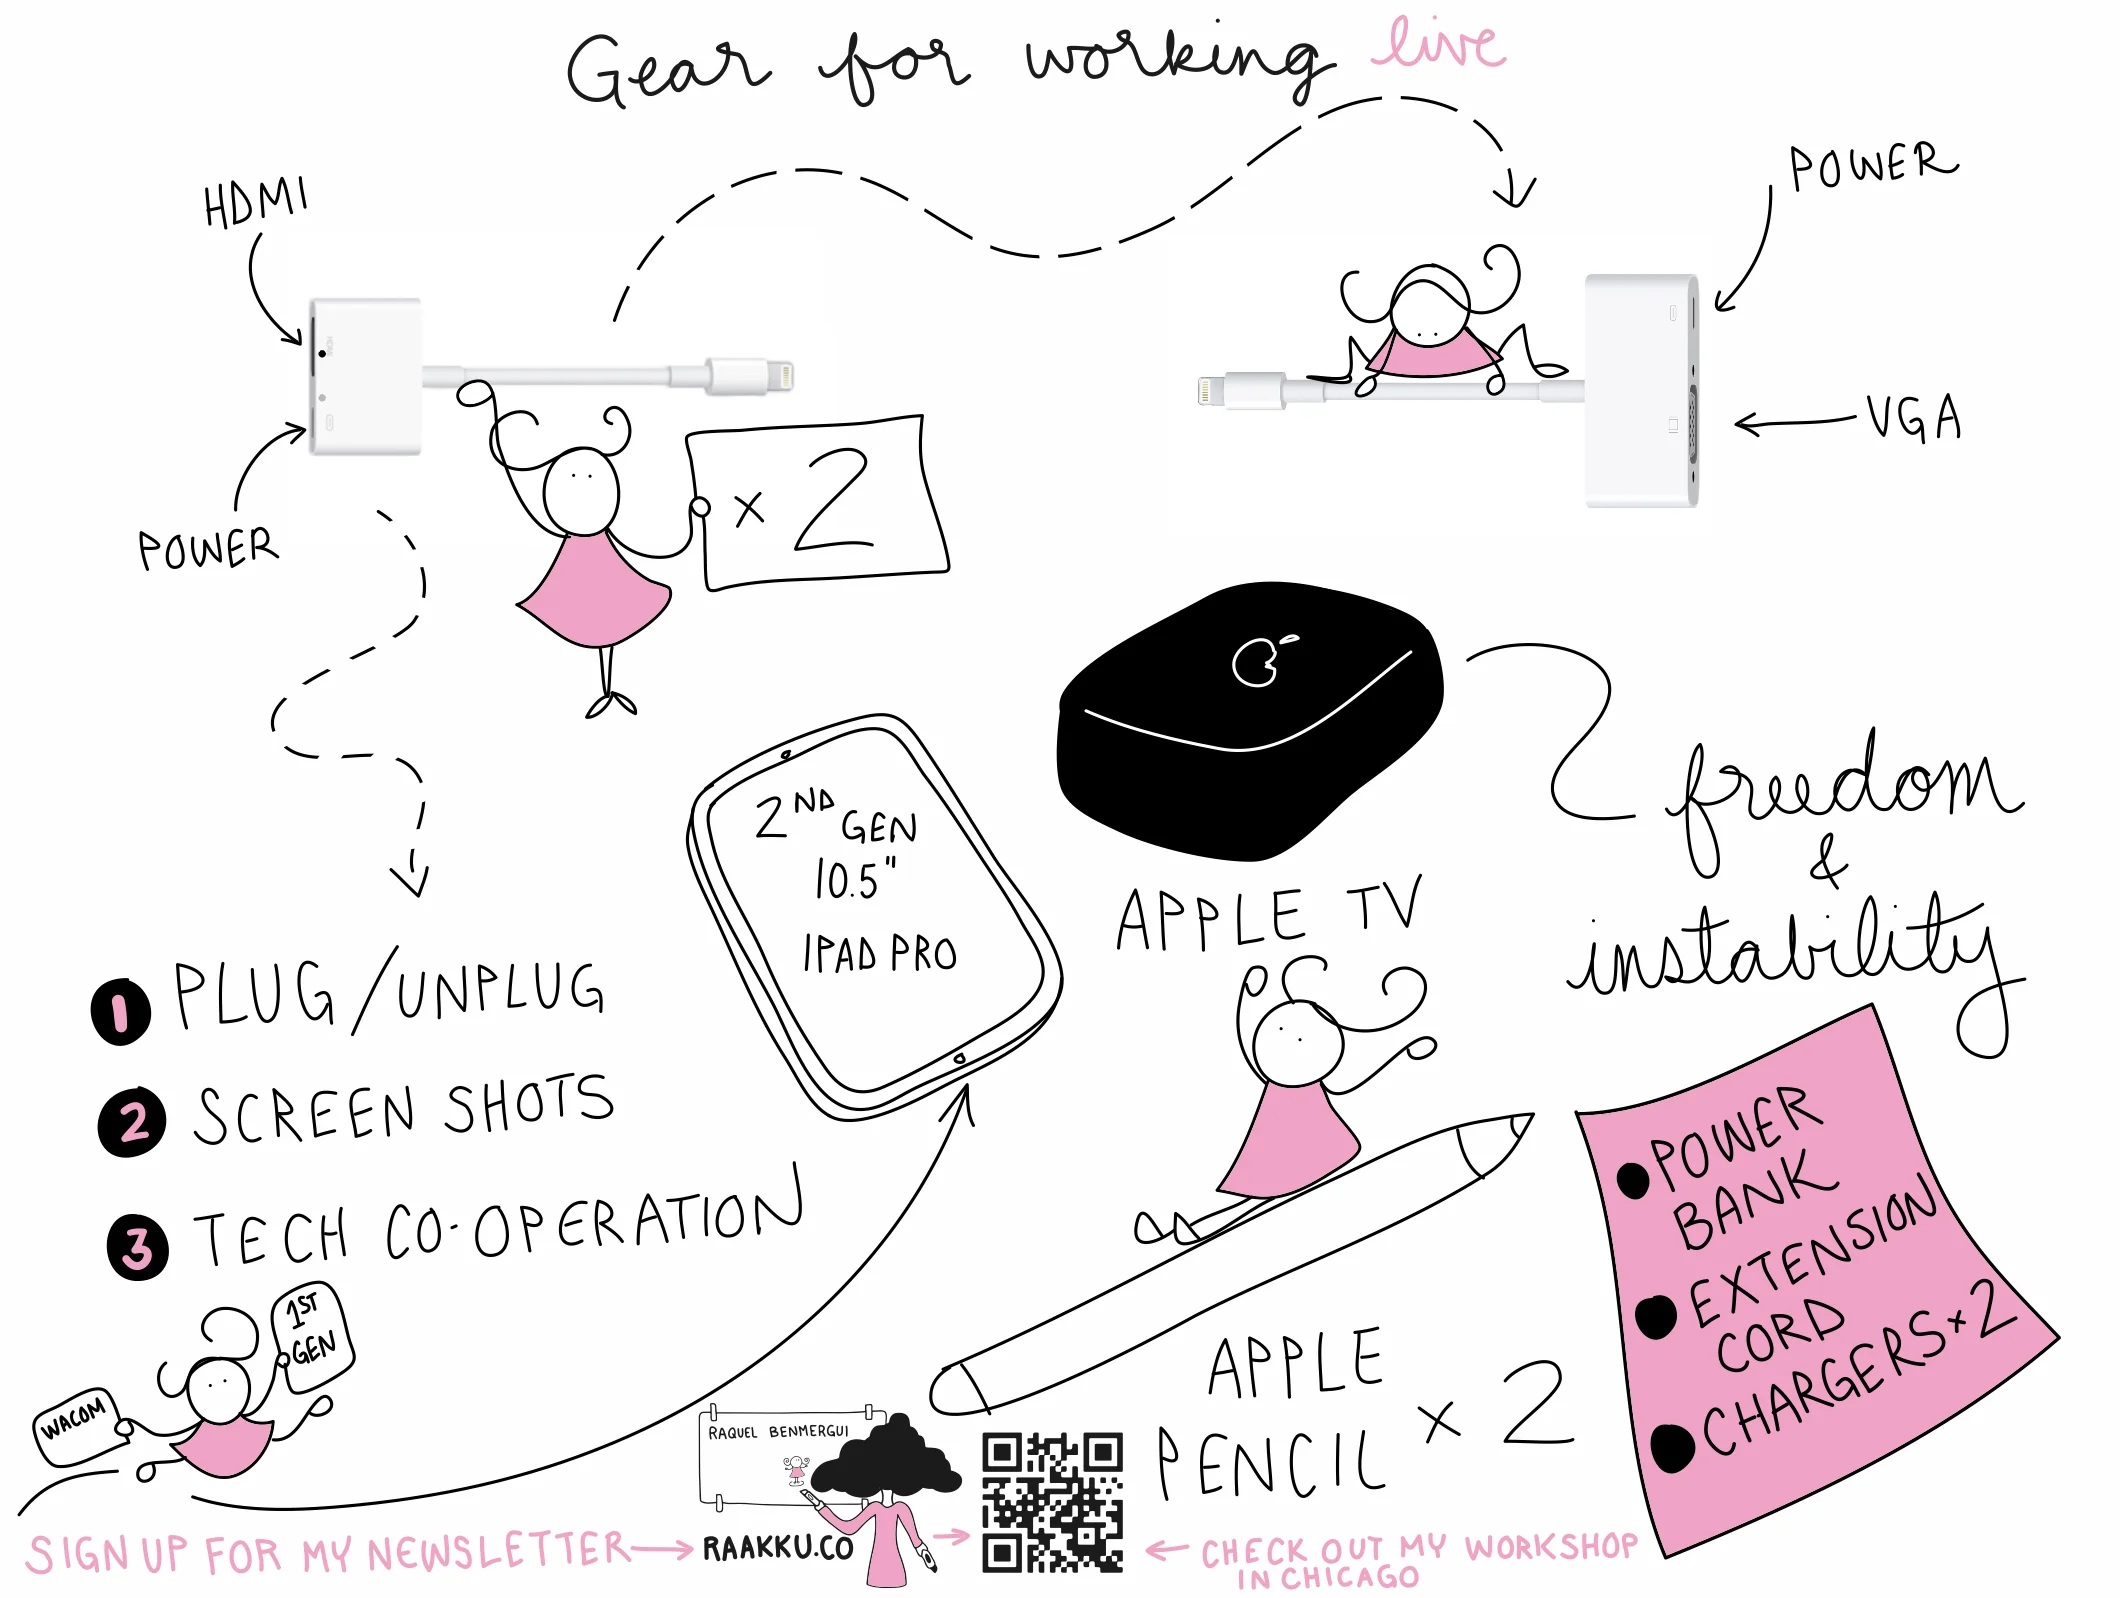 Gear for working live
HDMI
POWER
POWER
VGA
x 2
2ND
GEN
10.5"
IPAD PRO
APPLE TV
freedom
&
instability
1 PLUG/UNPLUG
2 SCREEN SHOTS
3 TECH CO-OPERATION
WACOM
1ST
GEN
APPLE
PENCIL x 2
• POWER
BANK
• EXTENSION
CORD
• CHARGERS x 2
RAQUEL BENMERGUI
SIGN UP FOR MY NEWSLETTER → RAAKKU.CO →
← CHECK OUT MY WORKSHOP
IN CHICAGO